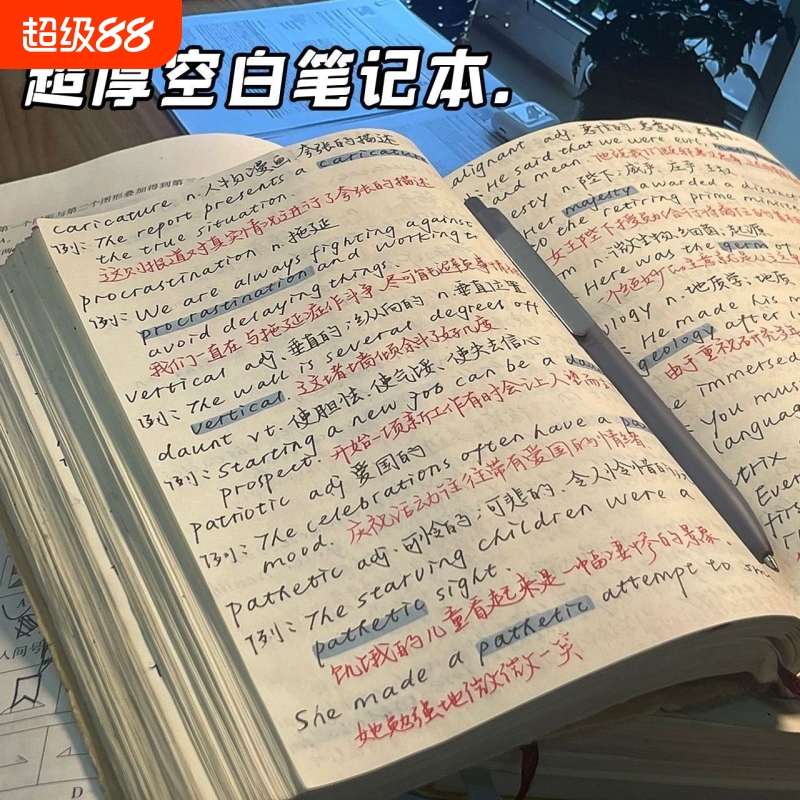 超级88
超厚空白笔记本.
caricature n.人物漫画,夸张的描述
例: The report presents a caricature
the true situation.
这则报道对真实情况进行了夸张的描述
procrastination n. 拖延
例: We are always fighting against
procrastination and working to
avoid delaying things.
我们一直在与拖延症作斗争
vertical adj. 垂直的;纵向的 n.垂直位置
例: The wall is several degrees off
vertical. 这堵墙倾斜了好几度
daunt vt. 使胆怯,使气馁,使失去信心
例: Starting a new job can be a
prospect. 开始一项新工作有时会让人望而
patriotic adj 爱国的
例: The celebrations often have a
mood. 庆祝活动往往带有爱国的情绪
pathetic adj. 可怜的;可悲的,令人怜惜的
例: The starving children were a
pathetic sight.
饥饿的儿童看起来是一幅凄惨的景象.
She made a pathetic attempt to sm
她勉强地微微一笑
alignant adj.
: He said that we were evil
and mean.
esty n.陛下,威严,庄严
Her majesty awarded a
to the retiring prime
n.微生物,细菌,起源
: Here was the germ of
ology n. 地质学;地质
: He made his
geology after
由于重视研究
e immersed
: You must
language
trix
Ever
firs
第一个图形与第二个图形叠加得到第三
人问号
D